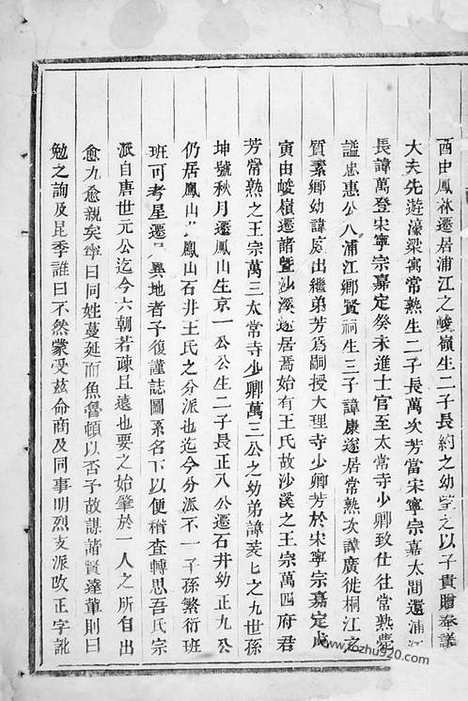 酉由鳳林遷居浦江之峻嶺生二子長約之幼望之以子貴贈奉議
大夫先遊濠梁寓常熟生二子長萬次芳當宋寧宗嘉大間還浦江
長諱萬登宋寧宗嘉定癸未進士官至太常寺少卿致仕往常熟薨
諡忠惠公入浦江鄉賢祠生三子諱康遂居常熟次諱廣徙桐江之
質素鄉幼諱庭出繼弟芳為嗣授大理寺少卿芳於宋寧宗嘉定戊
寅由峻嶺遷諸暨沙溪遂居焉始有王氏故沙溪之王宗萬四府君
芳常熟之王宗萬三太常寺少卿萬三公之幼弟諱芳七之九世孫
坤號秋月遷鳳山生京一公公生二子長正八公遷石井幼正九公
仍居鳳山鳳山石井王氏之分派也迄今分派不一子孫繁衍班
班可考星遷異地者子復謹誌圖系名下以便稽查轉思吾氏宗
派自唐世元公迄今六朝若疎且遠也要之始肇於一人之所自出
愈九愈親矣寧曰同姓蔓延而魚魯頓以否予故謀諸賢達輩則曰
勉之詢及昆季誰曰不然蒙受茲命商及同事明烈支派改正字訛
www.zozhu920.com